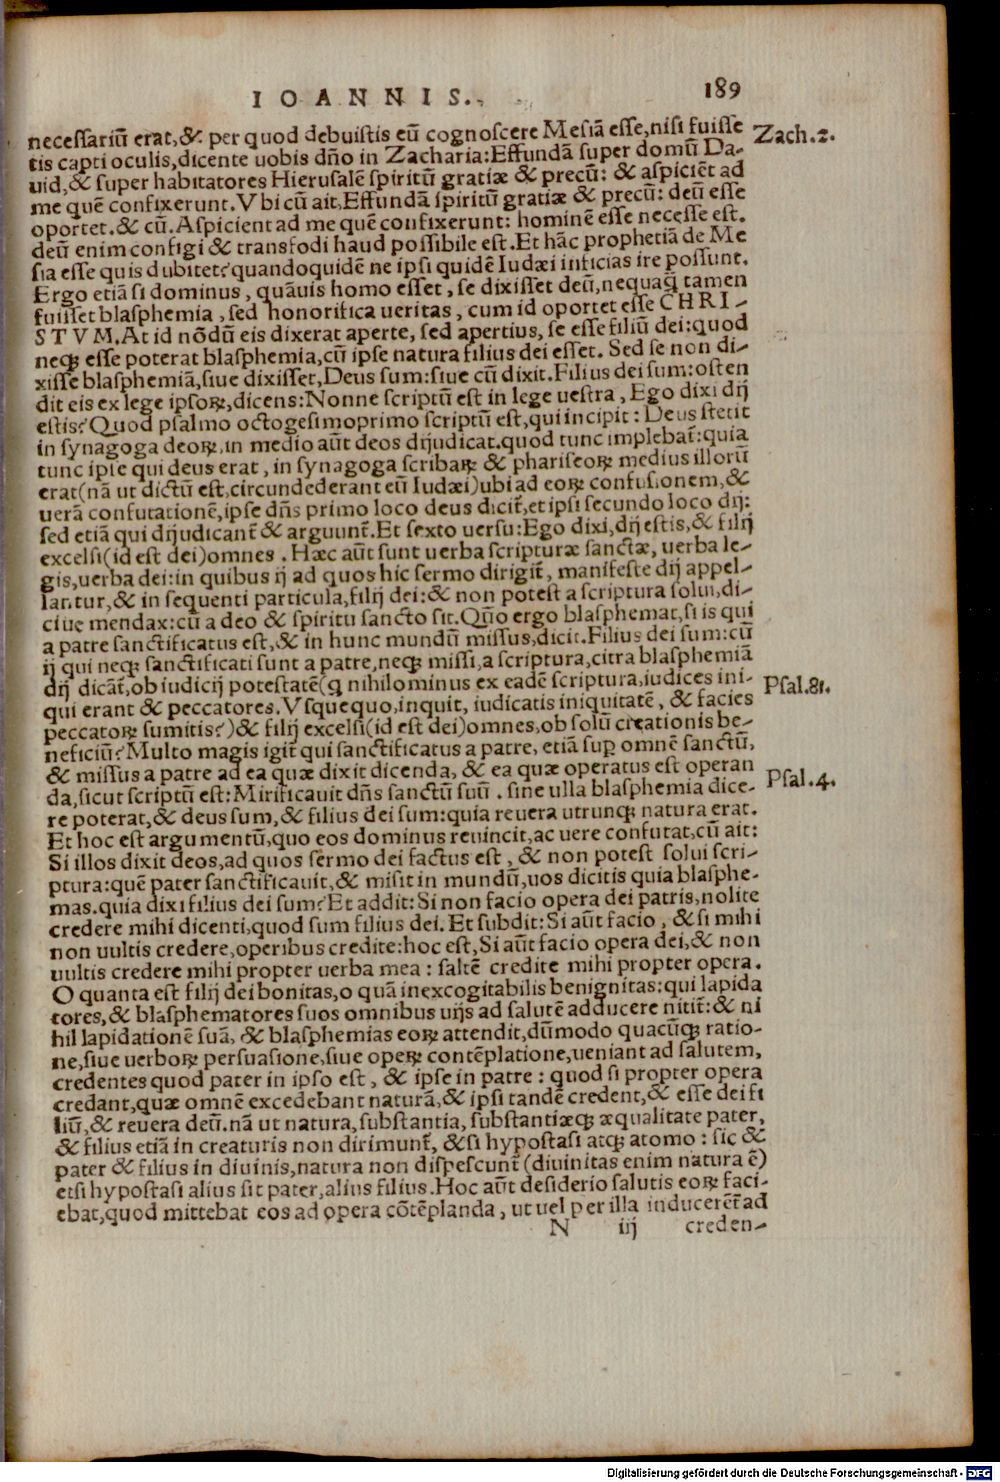 IOANNIS. 189
necessariũ erat,&. per quod debuistis eũ cognoscere Mesiã esse,nisi fuisse Zach.2.
tis capti oculis,dicente uobis dño in Zacharia:Effundã super domũ Da-
uid,& super habitatores Hierusalẽ spiritũ gratiæ & precũ: & aspiciẽt ad
me quẽ confixerunt. Vbi cũ ait,Effundã spiritũ gratiæ & precũ: deũ esse
oportet.& cũ.Aspicient ad me quẽ confixerunt: hominẽ esse necesse est.
deũ enim configi & transfodi haud possibile est.Et hãc prophetiã de Me
sia esse quis dubitet?quandoquidẽ ne ipsi quidẽ Iudæi inficias ire possunt.
Ergo etiã si dominus, quãuis homo esset, se dixisset deũ,nequaq̃ tamen
fuisset blasphemia, sed honorifica ueritas, cum id oportet esse CHRI-
STVM.At id nõdũ eis dixerat aperte, sed apertius, se esse filiũ dei:quod
neqꝫ esse poterat blasphemia,cũ ipse natura filius dei esset. Sed se non di-
xisse blasphemiã,siue dixisset,Deus sum:siue cũ dixit.Filius dei sum:osten
dit eis ex lege ipsoꝝ,dicens:Nonne scriptũ est in lege uestra, Ego dixi dij
estis?Quod psalmo octogesimoprimo scriptũ est,qui incipit: Deus stetit
in synagoga deoꝝ,in medio aũt deos dijudicat.quod tunc implebat̃:quia
tunc ipse qui deus erat, in synagoga scribaꝝ & phariseoꝝ medius illorũ
erat(nã ut dictũ est,circundederant eũ Iudæi)ubi ad eoꝝ confusionem,&
uerã confutationẽ,ipse dñs primo loco deus dicit̃,et ipsi secundo loco dij:
sed etiã qui dijudicant̃ & arguunt̃.Et sexto uersu:Ego dixi,dij estis,& filij
excelsi(id est dei)omnes. Hæc aũt sunt uerba scripturæ sanctæ, uerba le-
gis,uerba dei:in quibus ij ad quos hic sermo dirigit̃, manifeste dij appel-
lantur,& in sequenti particula,filij dei:& non potest a scriptura solui,di-
ciue mendax:cũ a deo & spiritu sancto sit.Qũo ergo blasphemat,si is qui
a patre sanctificatus est,& in hunc mundũ missus,dicit.Filius dei sum:cũ
ij qui neqꝫ sanctificati sunt a patre,neqꝫ missi,a scriptura,citra blasphemiã
dij dicãt̃,ob iudicij potestatẽ(q nihilominus ex eadẽ scriptura,iudices ini- Psal.81.
qui erant & peccatores.Vsquequo,inquit, iudicatis iniquitatẽ, & facies
peccatoꝝ sumitis?)& filij excelsi(id est dei)omnes,ob solũ creationis be-
neficiũ?Multo magis igit̃ qui sanctificatus a patre, etiã sup omnẽ sanctũ,
& missus a patre ad ea quæ dixit dicenda, & ea quæ operatus est operan Psal.4.
da,sicut scriptũ est:Mirificauit dñs sanctũ suũ. sine ulla blasphemia dice-
re poterat,& deus sum,& filius dei sum:quia reuera utrunqꝫ natura erat.
Et hoc est argumentũ,quo eos dominus reuincit,ac uere confutat,cũ ait:
Si illos dixit deos,ad quos sermo dei factus est, & non potest solui scri-
ptura:quẽ pater sanctificauit,& misit in mundũ,uos dicitis quia blasphe-
mas.quia dixi filius dei sum?Et addit:Si non facio opera dei patris,nolite
credere mihi dicenti,quod sum filius dei. Et subdit:Si aũt facio, & si mihi
non uultis credere,operibus credite:hoc est,Si aũt facio opera dei,& non
uultis credere mihi propter uerba mea: saltẽ credite mihi propter opera.
O quanta est filij dei bonitas,o quã inexcogitabilis benignitas:qui lapida
tores,& blasphematores suos omnibus uijs ad salutẽ adducere nitit̃:& ni
hil lapidationẽ suã, & blasphemias eoꝝ attendit,dũmodo quacũqꝫ ratio-
ne,siue uerboꝝ persuasione,siue opeꝝ contẽplatione,ueniant ad salutem,
credentes quod pater in ipso est, & ipse in patre: quod si propter opera
credant,quæ omnẽ excedebant naturã,& ipsi tandẽ credent,& esse dei fi
liũ,& reuera deũ.nã ut natura,substantia, substantiæqꝫ æqualitate pater,
& filius etiã in creaturis non dirimunt̃, & si hypostasi atqꝫ atomo: sic &
pater & filius in diuinis,natura non dispescunt̃(diuinitas enim natura ẽ)
etsi hypostasi alius sit pater,alius filius.Hoc aũt desiderio salutis eoꝝ faci-
ebat,quod mittebat eos ad opera cõtẽplanda, ut uel per illa inducerẽt̃ ad
N iij creden-
Digitalisierung gefördert durch die Deutsche Forschungsgemeinschaft - DFG